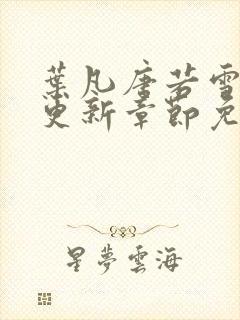 葉凡唐若雪
更新章節免
星夢雲海